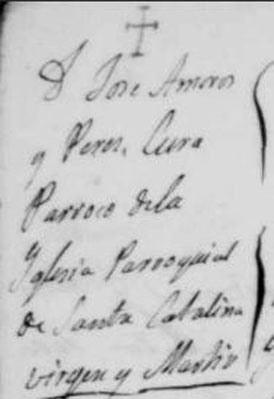 D. Jose Amoros
y Peres, Cura
Parroco dela
Yglesia Parroquial
de Santa Catalina
virgen y Martir